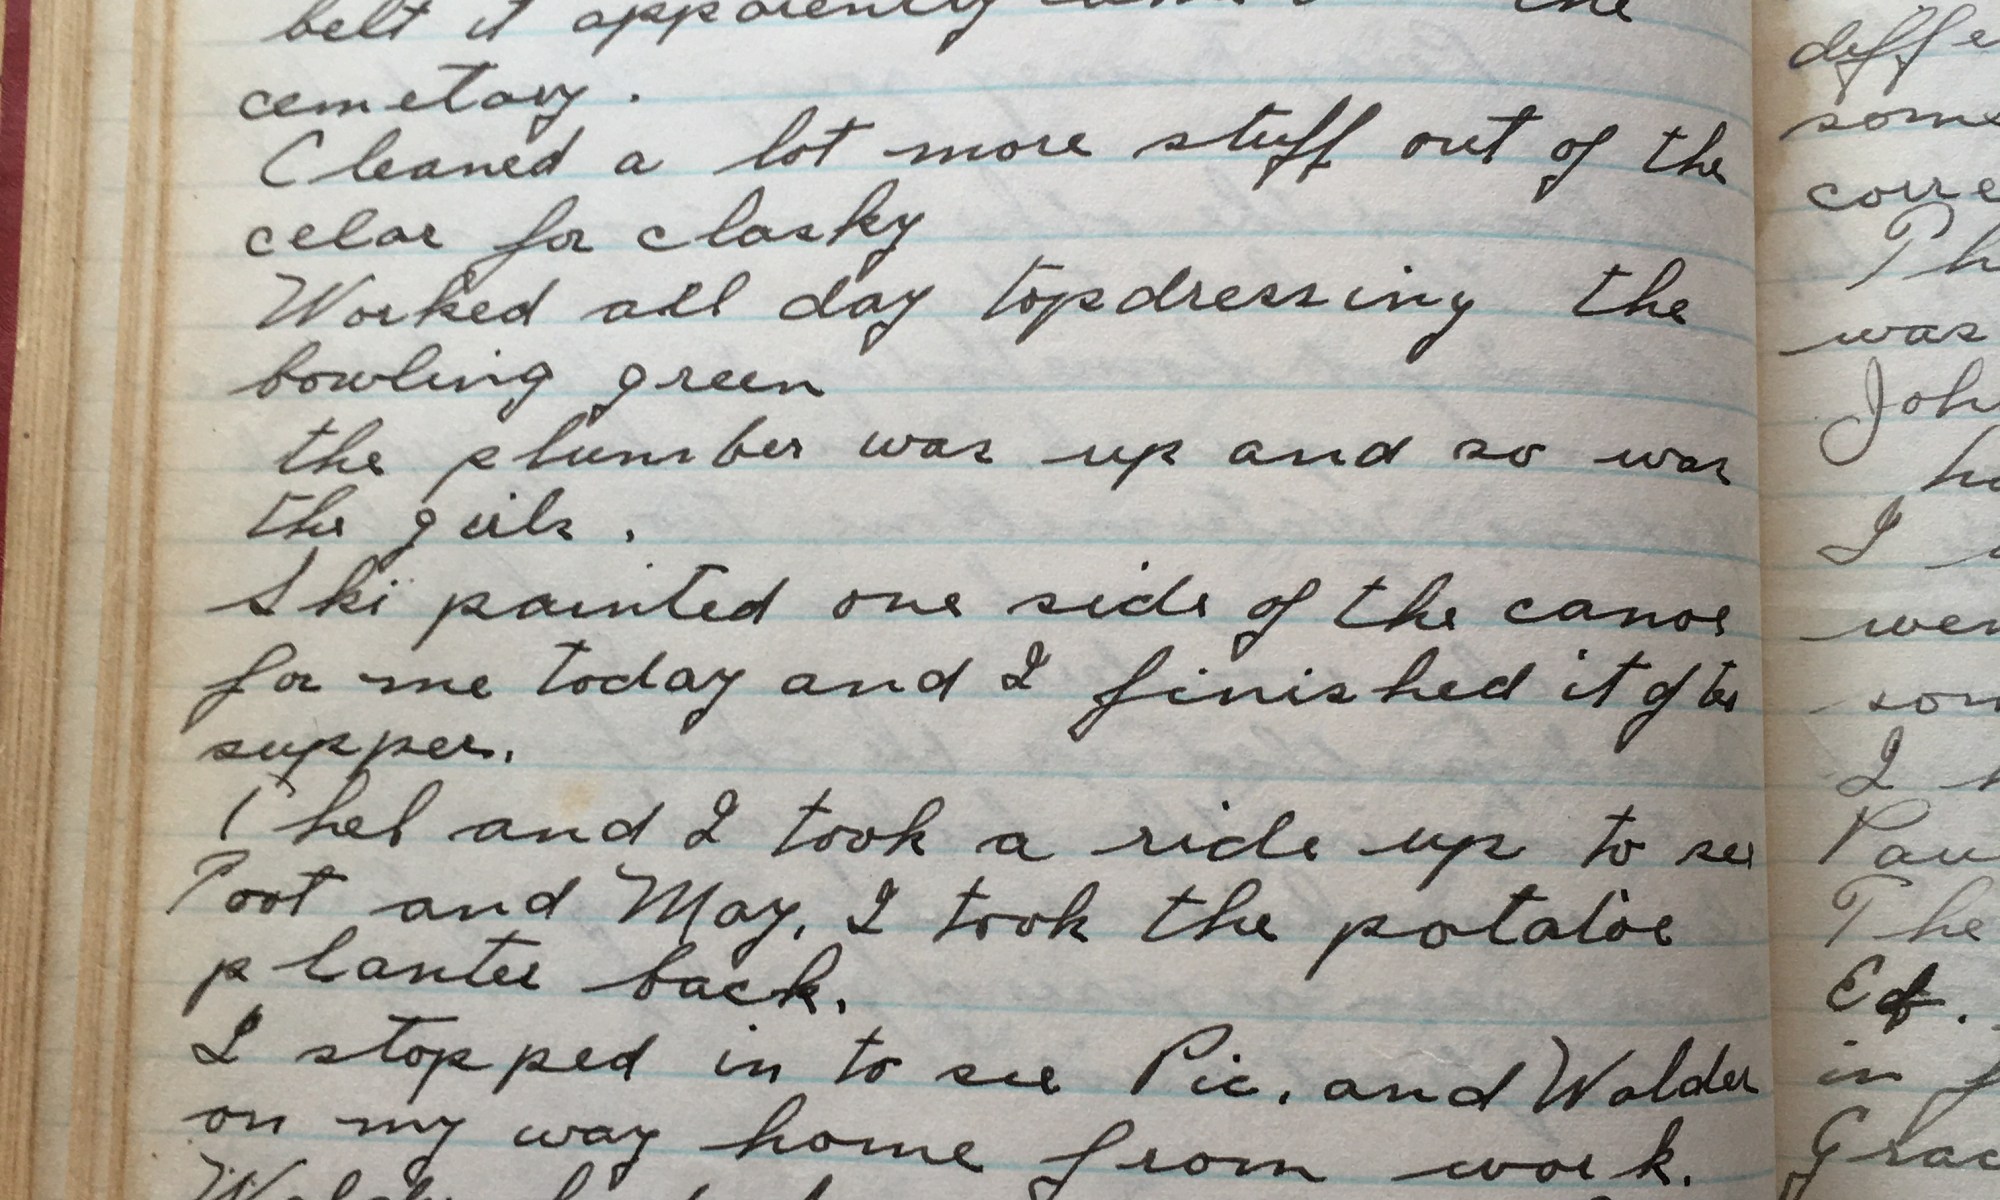 belt it apparently the
cemetary.
Cleaned a lot more stuff out of the
celar for clasky
Worked all day topdressing the
bowling green
the plumber was up and so was
the girls.
Ski painted one side of the canoe
for me today and I finished it after
supper.
Thel and I took a ride up to see
Poot and May. I took the potatoe
planter back.
I stopped in to see Pic. and Walder
on my way home from work.
diffe
some
corre
Th
was
Joh
ha
I
wen
som
I h
Pau
The
Ed.
in f
Grac